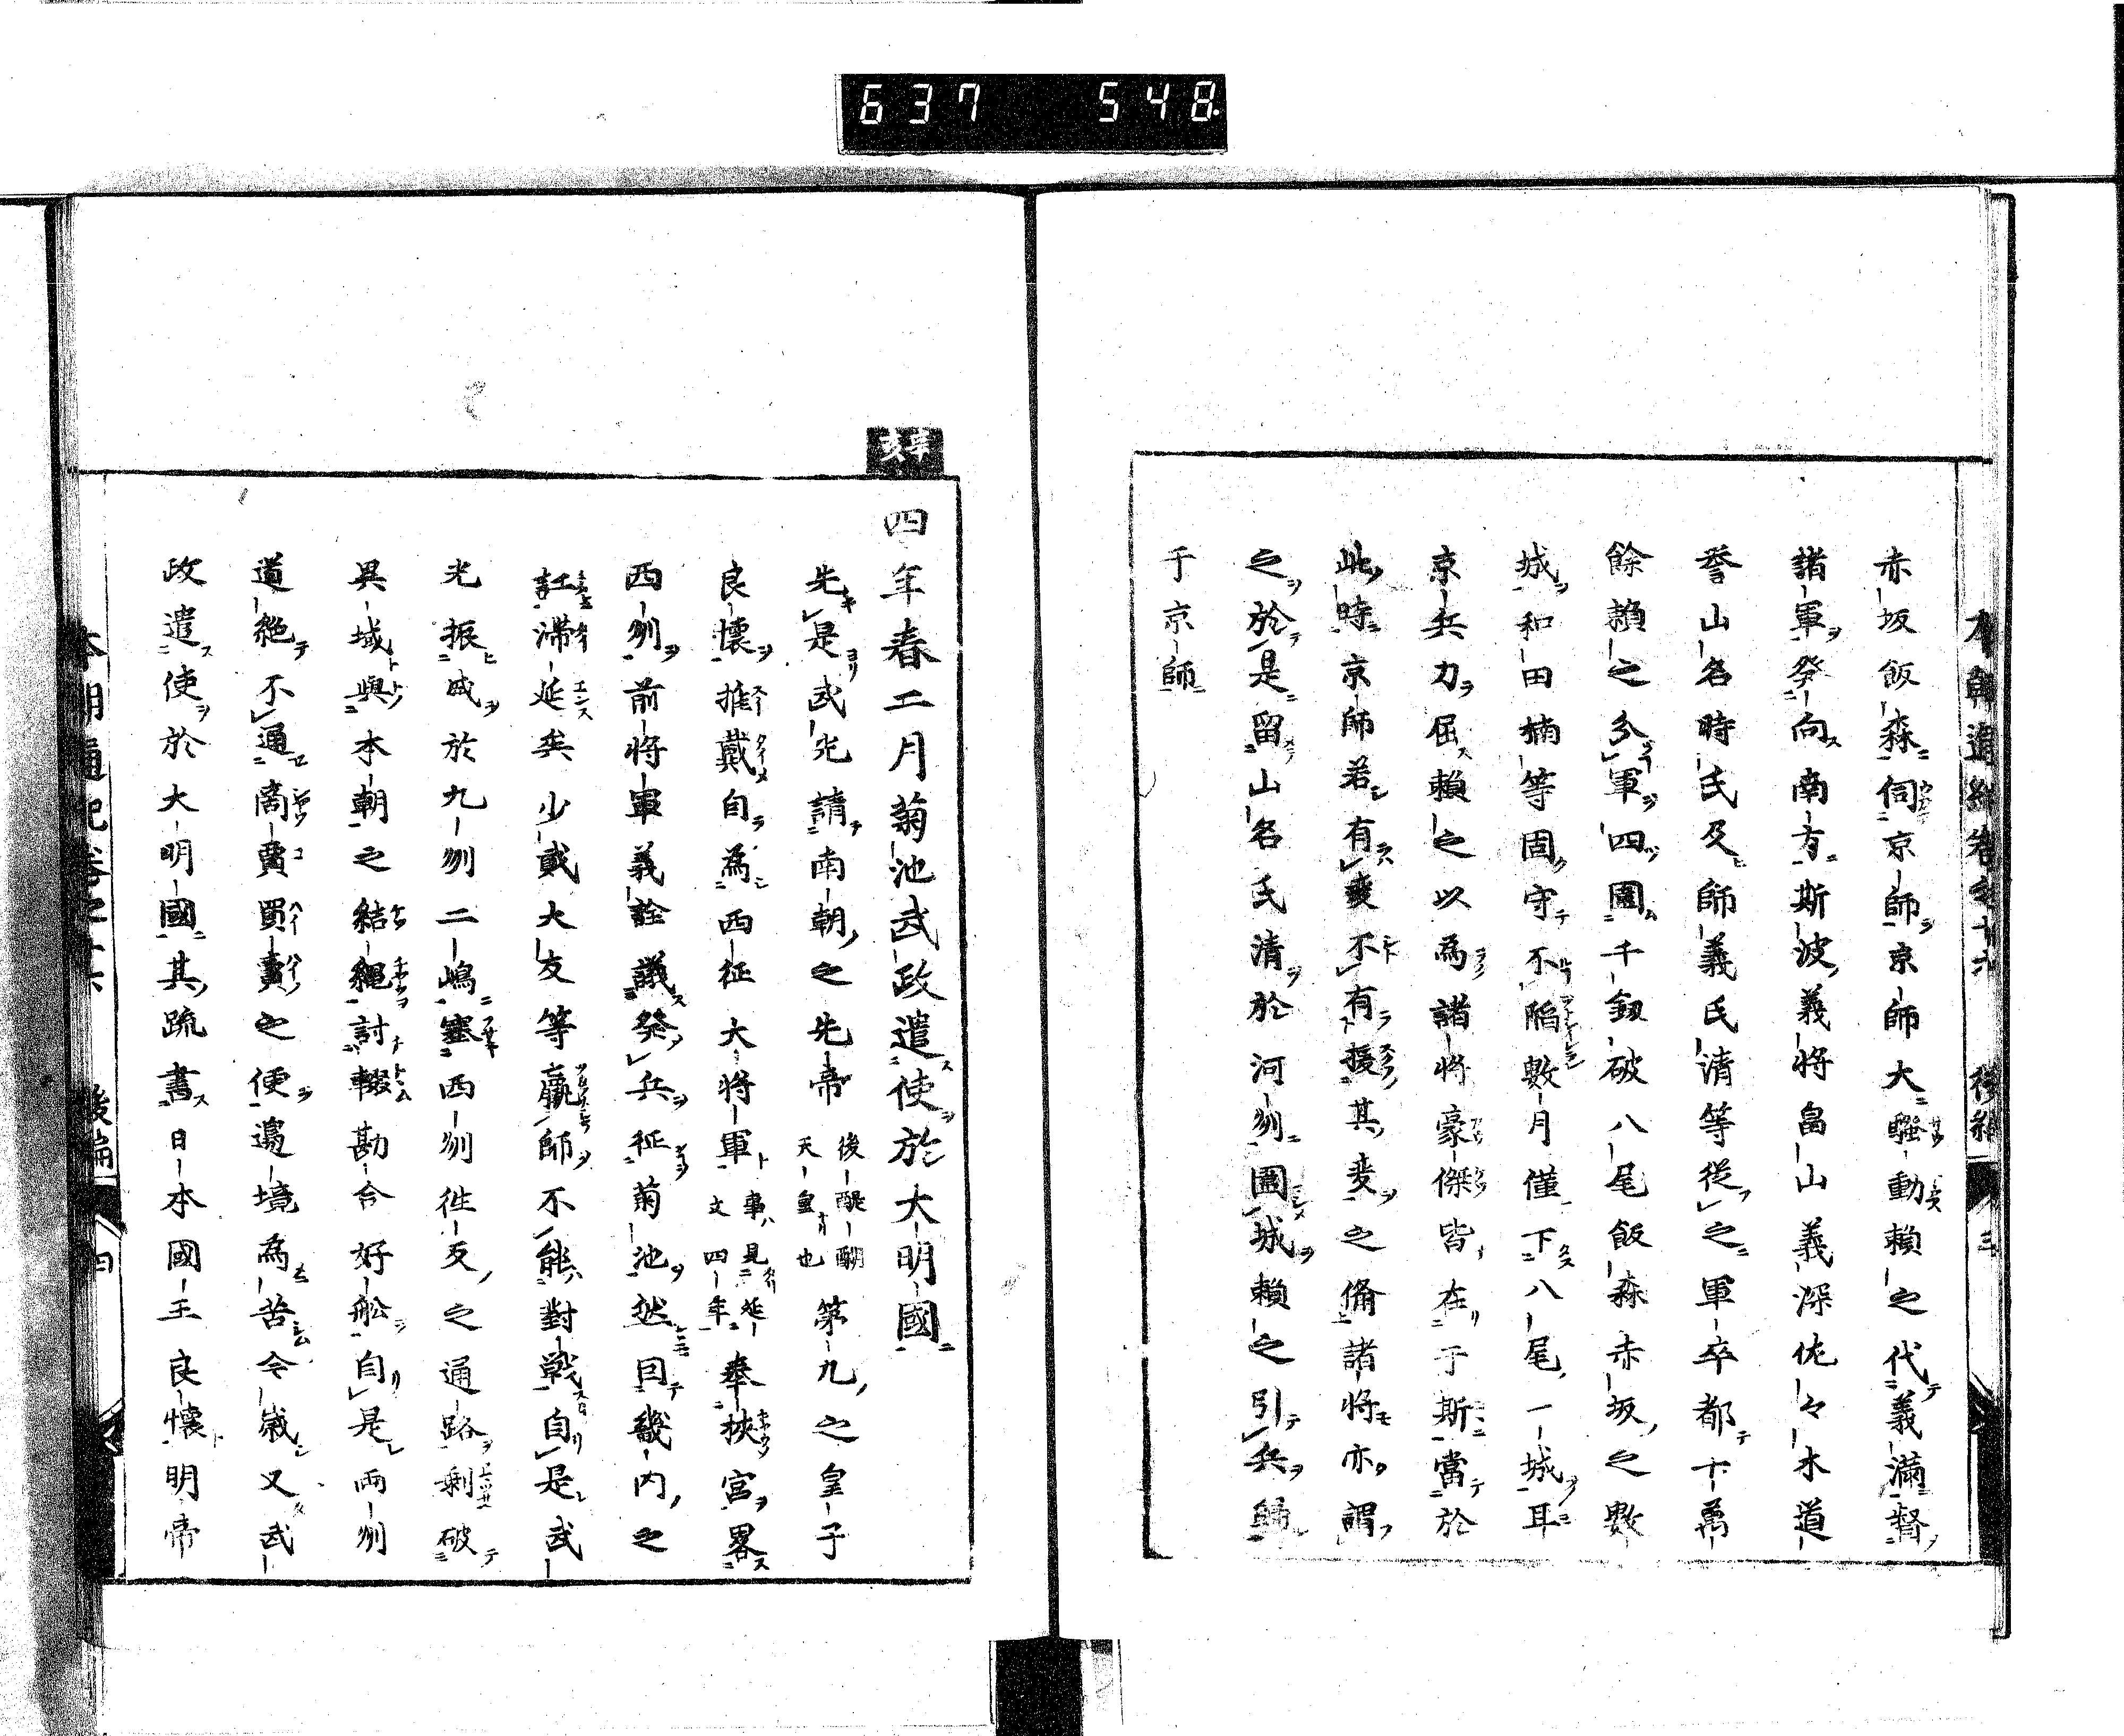 637 548
本朝通紀卷之十六 後編 三
赤坂飯森伺京師京師大騷動賴之代義滿督
諸軍發向南方斯波義將畠山義深佐々木道
誉山名時氏及師義氏清等從之軍卒都十萬
餘賴之分軍四圍千釼破八尾飯森赤坂之數
城和田楠等固守不陷數月僅下八尾一城耳
京兵力屈賴之以為諸將豪傑皆在于斯當於
此時京師若有變不有援其変之備諸將亦謂
之於是留山名氏清於河刕圍城賴之引兵歸
于京師
辛亥
四年春二月菊池武政遣使於大明國
先是武光請南朝之先帝後醍醐天皇也第九之皇子
良懷推戴自為西征大將軍事見延文四年奉挾宮畧
西刕前将軍義詮議發兵征菊池然因畿内之
訌滞延矣少貳大友等羸師不能對戦自是武
光振威於九刕二嶋塞西刕徃反之通路剰破
異域與本朝之結繩討轍勘合好舩自是兩刕
道絶不通商賈買賣之便邉境為苦今嵗又武
政遣使於大明國其疏書日本國王良懷明帝
本朝通紀卷之十六 後編 四